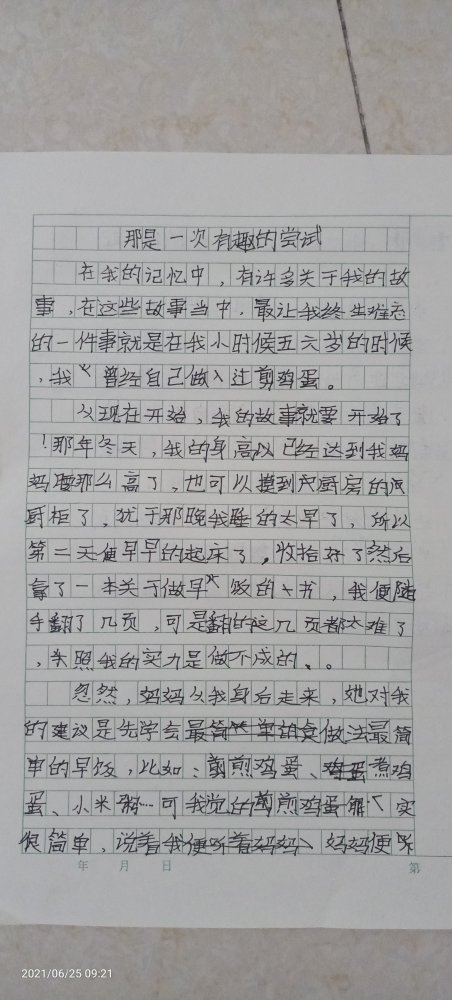 那是一次有趣的尝试
在我的记忆中，有许多关于我的故
事，在这些故事当中，最让我终生难忘
的一件事就是在我小时候五六岁的时候
，我曾经自己做过煎鸡蛋。
从现在开始，我的故事就要开始了
！那年冬天，我的身高以已经达到我妈
妈腰那么高了，也可以摸到厨房的
厨柜了，犹于那晚我睡的太早了，所以
第二天便早早的起床了，收拾好了然后
拿了一本关于做早饭的书，我便随
手翻了几页，可是翻的这几页都太难了
，照我的实力是做不成的。
忽然，妈妈从我身后走来，她对我
的建议是先学会做法最简
单的早饭，比如：煎鸡蛋、煮鸡
蛋、小米粥…可我觉的煎鸡蛋
很简单，说着我便听着妈妈、妈妈便听
年 月 日 第
2021/06/25 09:21